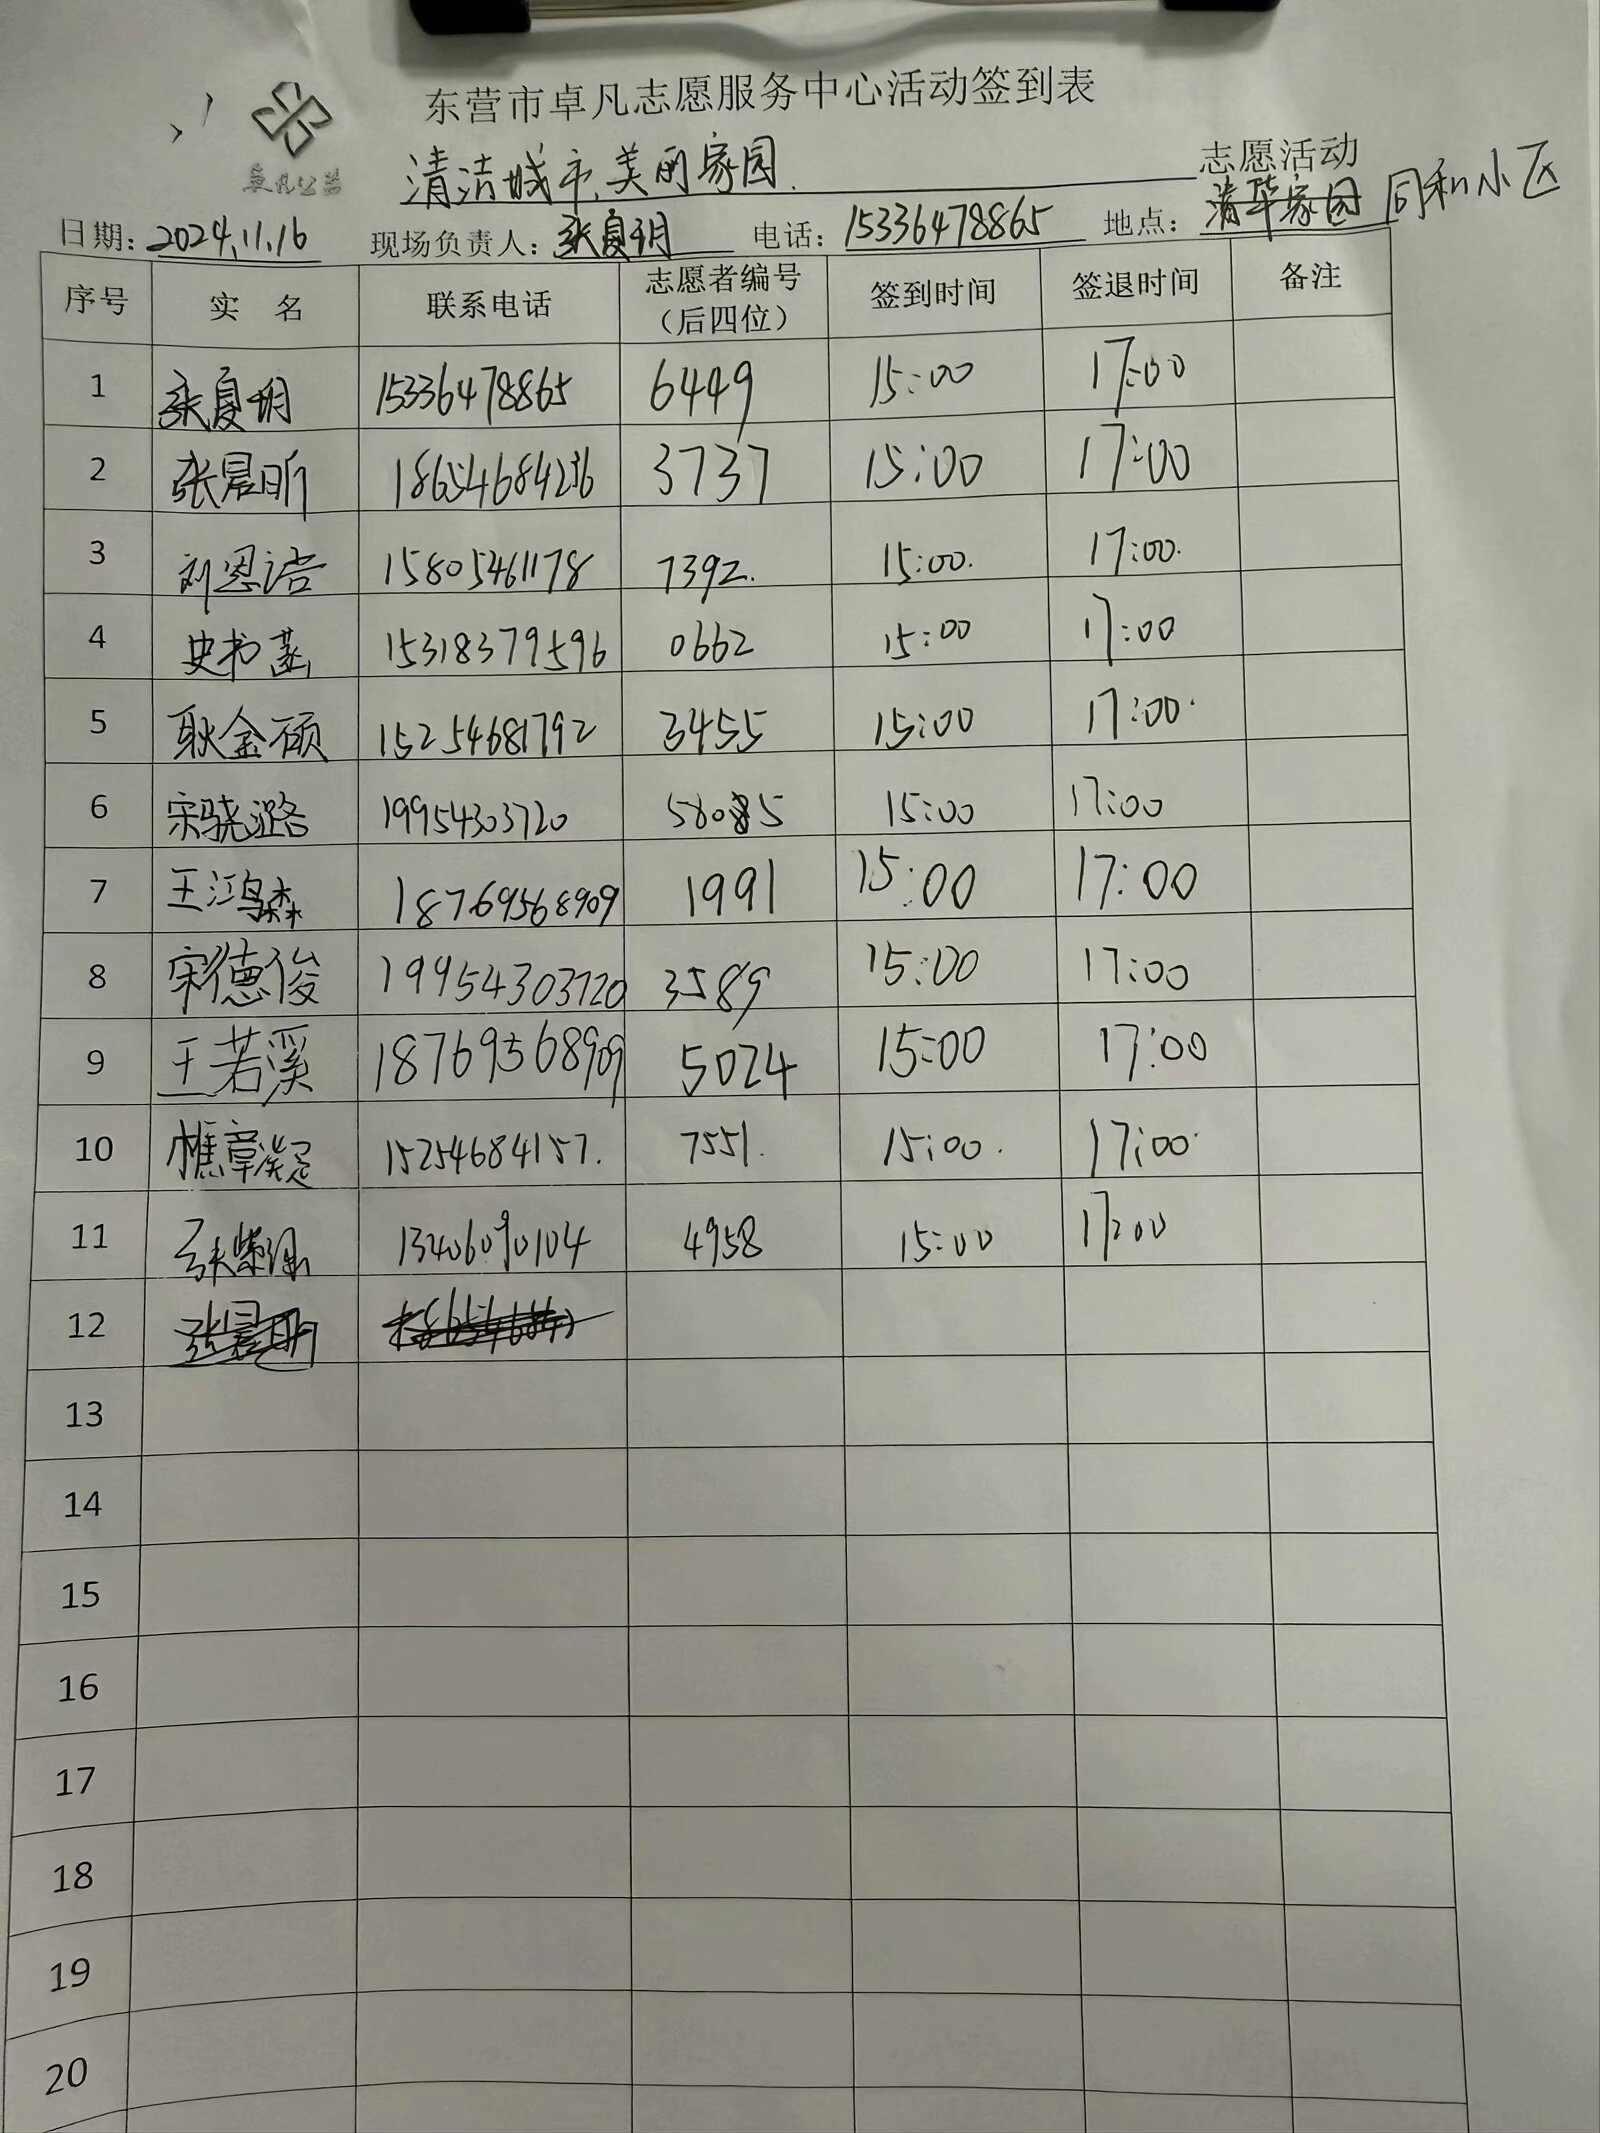 东营市卓凡志愿服务中心活动签到表
卓凡公益
清洁城市,美丽家园. 志愿活动
日期：2024.11.16 现场负责人：张夏玥 电话：15336478865 地点：清华家园 同和小区
序号 实 名 联系电话 志愿者编号（后四位） 签到时间 签退时间 备注
1 张夏玥 15336478865 6449 15:00 17:00
2 张晨昕 18654684236 3737 15:00 17:00
3 刘恩浩 15805461178 7392. 15:00. 17:00.
4 史书菡 15318379596 0662 15:00 17:00
5 耿金硕 15254681792 3455 15:00 17:00.
6 宋骁潞 19954303720 15:00 17:00
7 王鸿森 18769568909 1991 15:00 17:00
8 宋德俊 19954303720 3589 15:00 17:00
9 王若溪 18769568909 5024 15:00 17:00
10 15254684157. 7551. 15:00. 17:00.
11 13406090104 4958 15:00 17:00
12
13
14
15
16
17
18
19
20